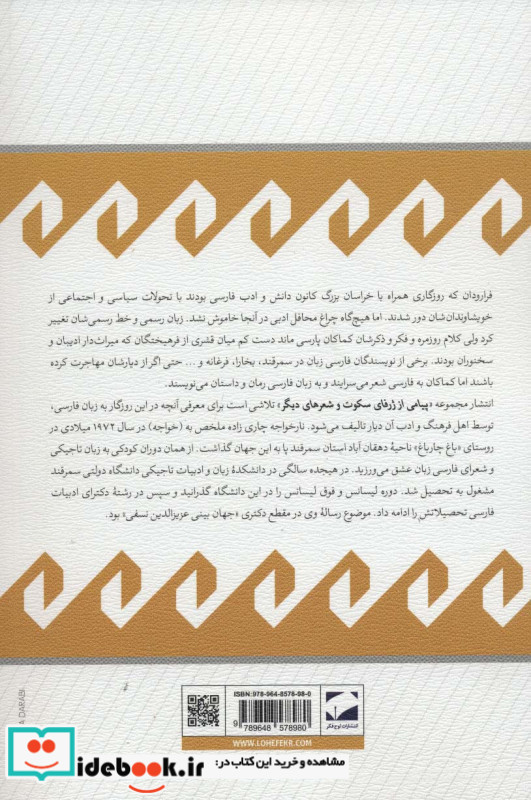 فرارودان که روزگاری همراه با خراسان بزرگ کانون دانش و ادب فارسی بودند با تحولات سیاسی و اجتماعی از
خویشاوندان‌شان دور شدند. اما هیچ‌گاه چراغ محافل ادبی در آنجا خاموش نشد. زبان رسمی و خط رسمی‌شان تغییر
کرد ولی کلام روزمره و فکر و ذکرشان کماکان پارسی ماند دست کم میان قشری از فرهیختگان که میراث‌دار ادیبان و
سخنوران بودند. برخی از نویسندگان فارسی زبان در سمرقند، بخارا، فرغانه و ... حتی اگر از دیارشان مهاجرت کرده
باشند اما کماکان به فارسی شعر می‌سرایند و به زبان فارسی رمان و داستان می‌نویسند.
انتشار مجموعه «پیامی از ژرفای سکوت و شعرهای دیگر» تلاشی است برای معرفی آنچه در این روزگار به زبان فارسی،
توسط اهل فرهنگ و ادب آن دیار تالیف می‌شود. نارخواجه چاری زاده ملخص به (خواجه) در سال ۱۹۷۲ میلادی در
روستای «باغ چارباغ» ناحیهٔ دهقان آباد استان سمرقند پا به این جهان گذاشت. از همان دوران کودکی به زبان تاجیکی
و شعرای فارسی زبان عشق می‌ورزید. در هیجده سالگی در دانشکدهٔ زبان و ادبیات تاجیکی دانشگاه دولتی سمرقند
مشغول به تحصیل شد. دوره لیسانس و فوق لیسانس را در این دانشگاه گذرانید و سپس در رشتهٔ دکترای ادبیات
فارسی تحصیلاتش را ادامه داد. موضوع رسالهٔ وی در مقطع دکتری «جهان بینی عزیزالدین نسفی» بود.
A DARABI
ISBN: 978-964-8578-98-0
9 789648 578980
انتشارات لوح فکر
WWW.LOHEFEKR.COM
idebook.ir
مشاهده و خرید این کتاب در: